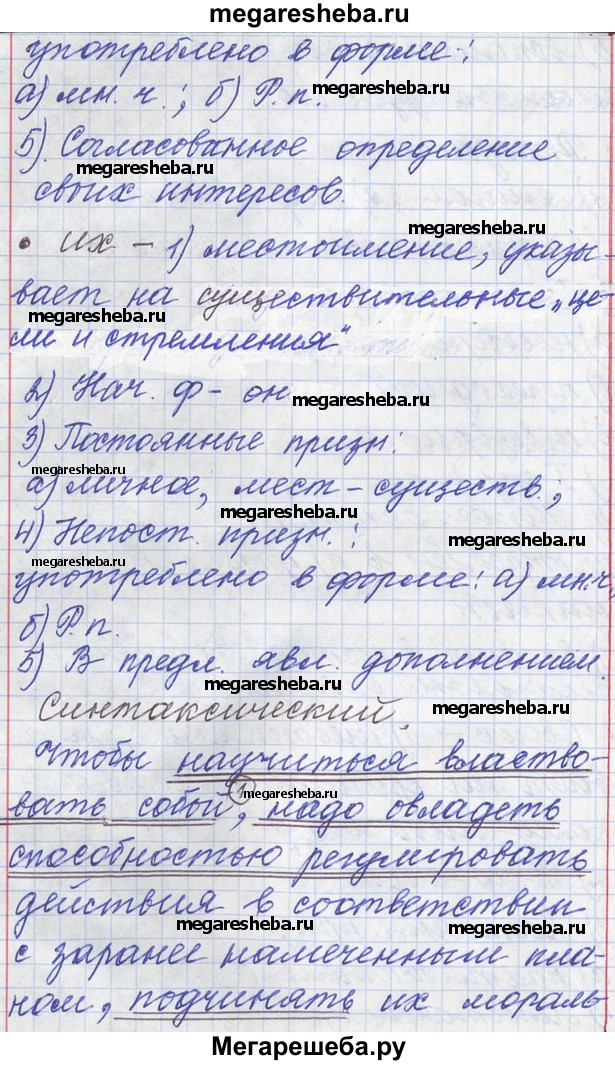 megaresheba.ru
употреблено в форме:
а) мн. ч.; б) Р. п.
megaresheba.ru
5) Согласованное определение
megaresheba.ru
своих интересов.
megaresheba.ru
• их – 1) местоимение, указы-
вает на существительные „це-
megaresheba.ru
ли и стремления“
2) Нач. ф – он
megaresheba.ru
3) Постоянные призн:
megaresheba.ru
а) личное, мест – существ.;
4) Непост. призн.:
megaresheba.ru
megaresheba.ru
употреблено в форме: а) мн.ч,
б) Р. п.
5) В предл. явл. дополнением.
megaresheba.ru
Синтаксический.
megaresheba.ru
Чтобы научиться властво-
вать собой, ① надо овладеть
megaresheba.ru
способностью регулировать
действия в соответствии
megaresheba.ru
megaresheba.ru
с заранее намеченным пла-
ном, подчинять их мораль
megaresheba.ru
Мегарешеба.ру